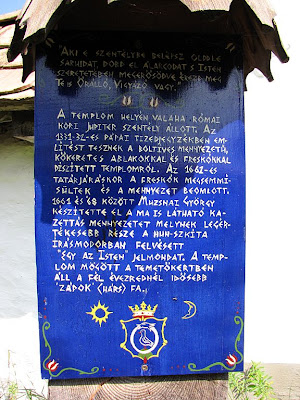 "Aki e szentélybe belépsz oldd le
sarudat, dobd el álarcodat s Isten
szeretetében megerősödve érezd meg
Te is Őrálló, Vigyázó vagy."
A templom helyén valaha római
kori Jupiter szentély állott. Az
1331-32-es pápai tizedjegyzékben em-
lítést tesznek a boltíves mennyezetű,
kőkeretes ablakokkal és freskókkal
díszített templomról. Az 1661-es
tatárjáráskor a freskók megsemmi-
sültek és a mennyezet beomlott.
1661 és 68 között Muzsnai György
készítette el a ma is látható ka-
zettás mennyezetet melynek legér-
tékesebb része a hun-szkíta
írásmodorban, felvésett
"Egy az Isten" jelmondat. A temp-
lom mögött a temetőkertben
áll a fél évezrednél idősebb
"zádok" (hárs) fa.